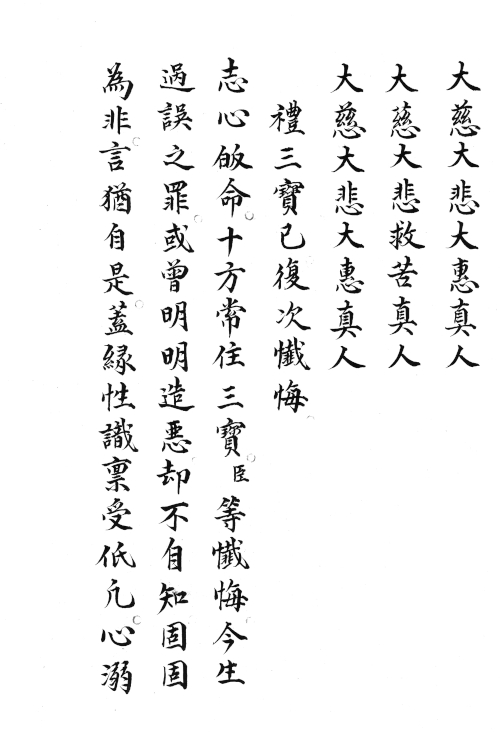 大慈大悲大惠真人
大慈大悲救苦真人
大慈大悲大惠真人
禮三寶已復次懺悔
志心皈命十方常住三寶臣等懺悔今生
過誤之罪或曾明明造惡却不自知固固
為非言猶自是蓋緣性識禀受低凢心溺